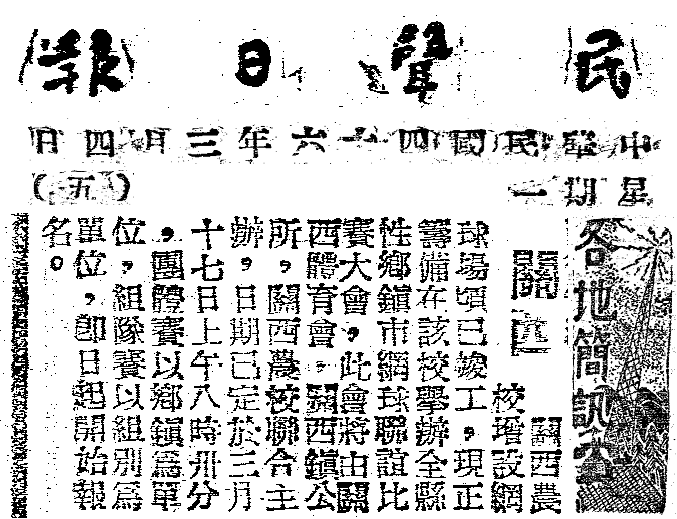 民聲日報
中華民國四十六年三月四日
星期一
（五）
各地簡訊
關西
關西農
校增設網
球場頃已竣工，現正
籌備在該校擧辦全縣
性鄉鎮市網球聯誼比
賽大會，此會將由關
西體育會，關西鎮公
所，關西農校聯合主
辦，日期已定於三月
十七日上午八時卅分
，團體賽以鄉鎮為單
位，組隊賽以組別為
單位，卽日起開始報
名。